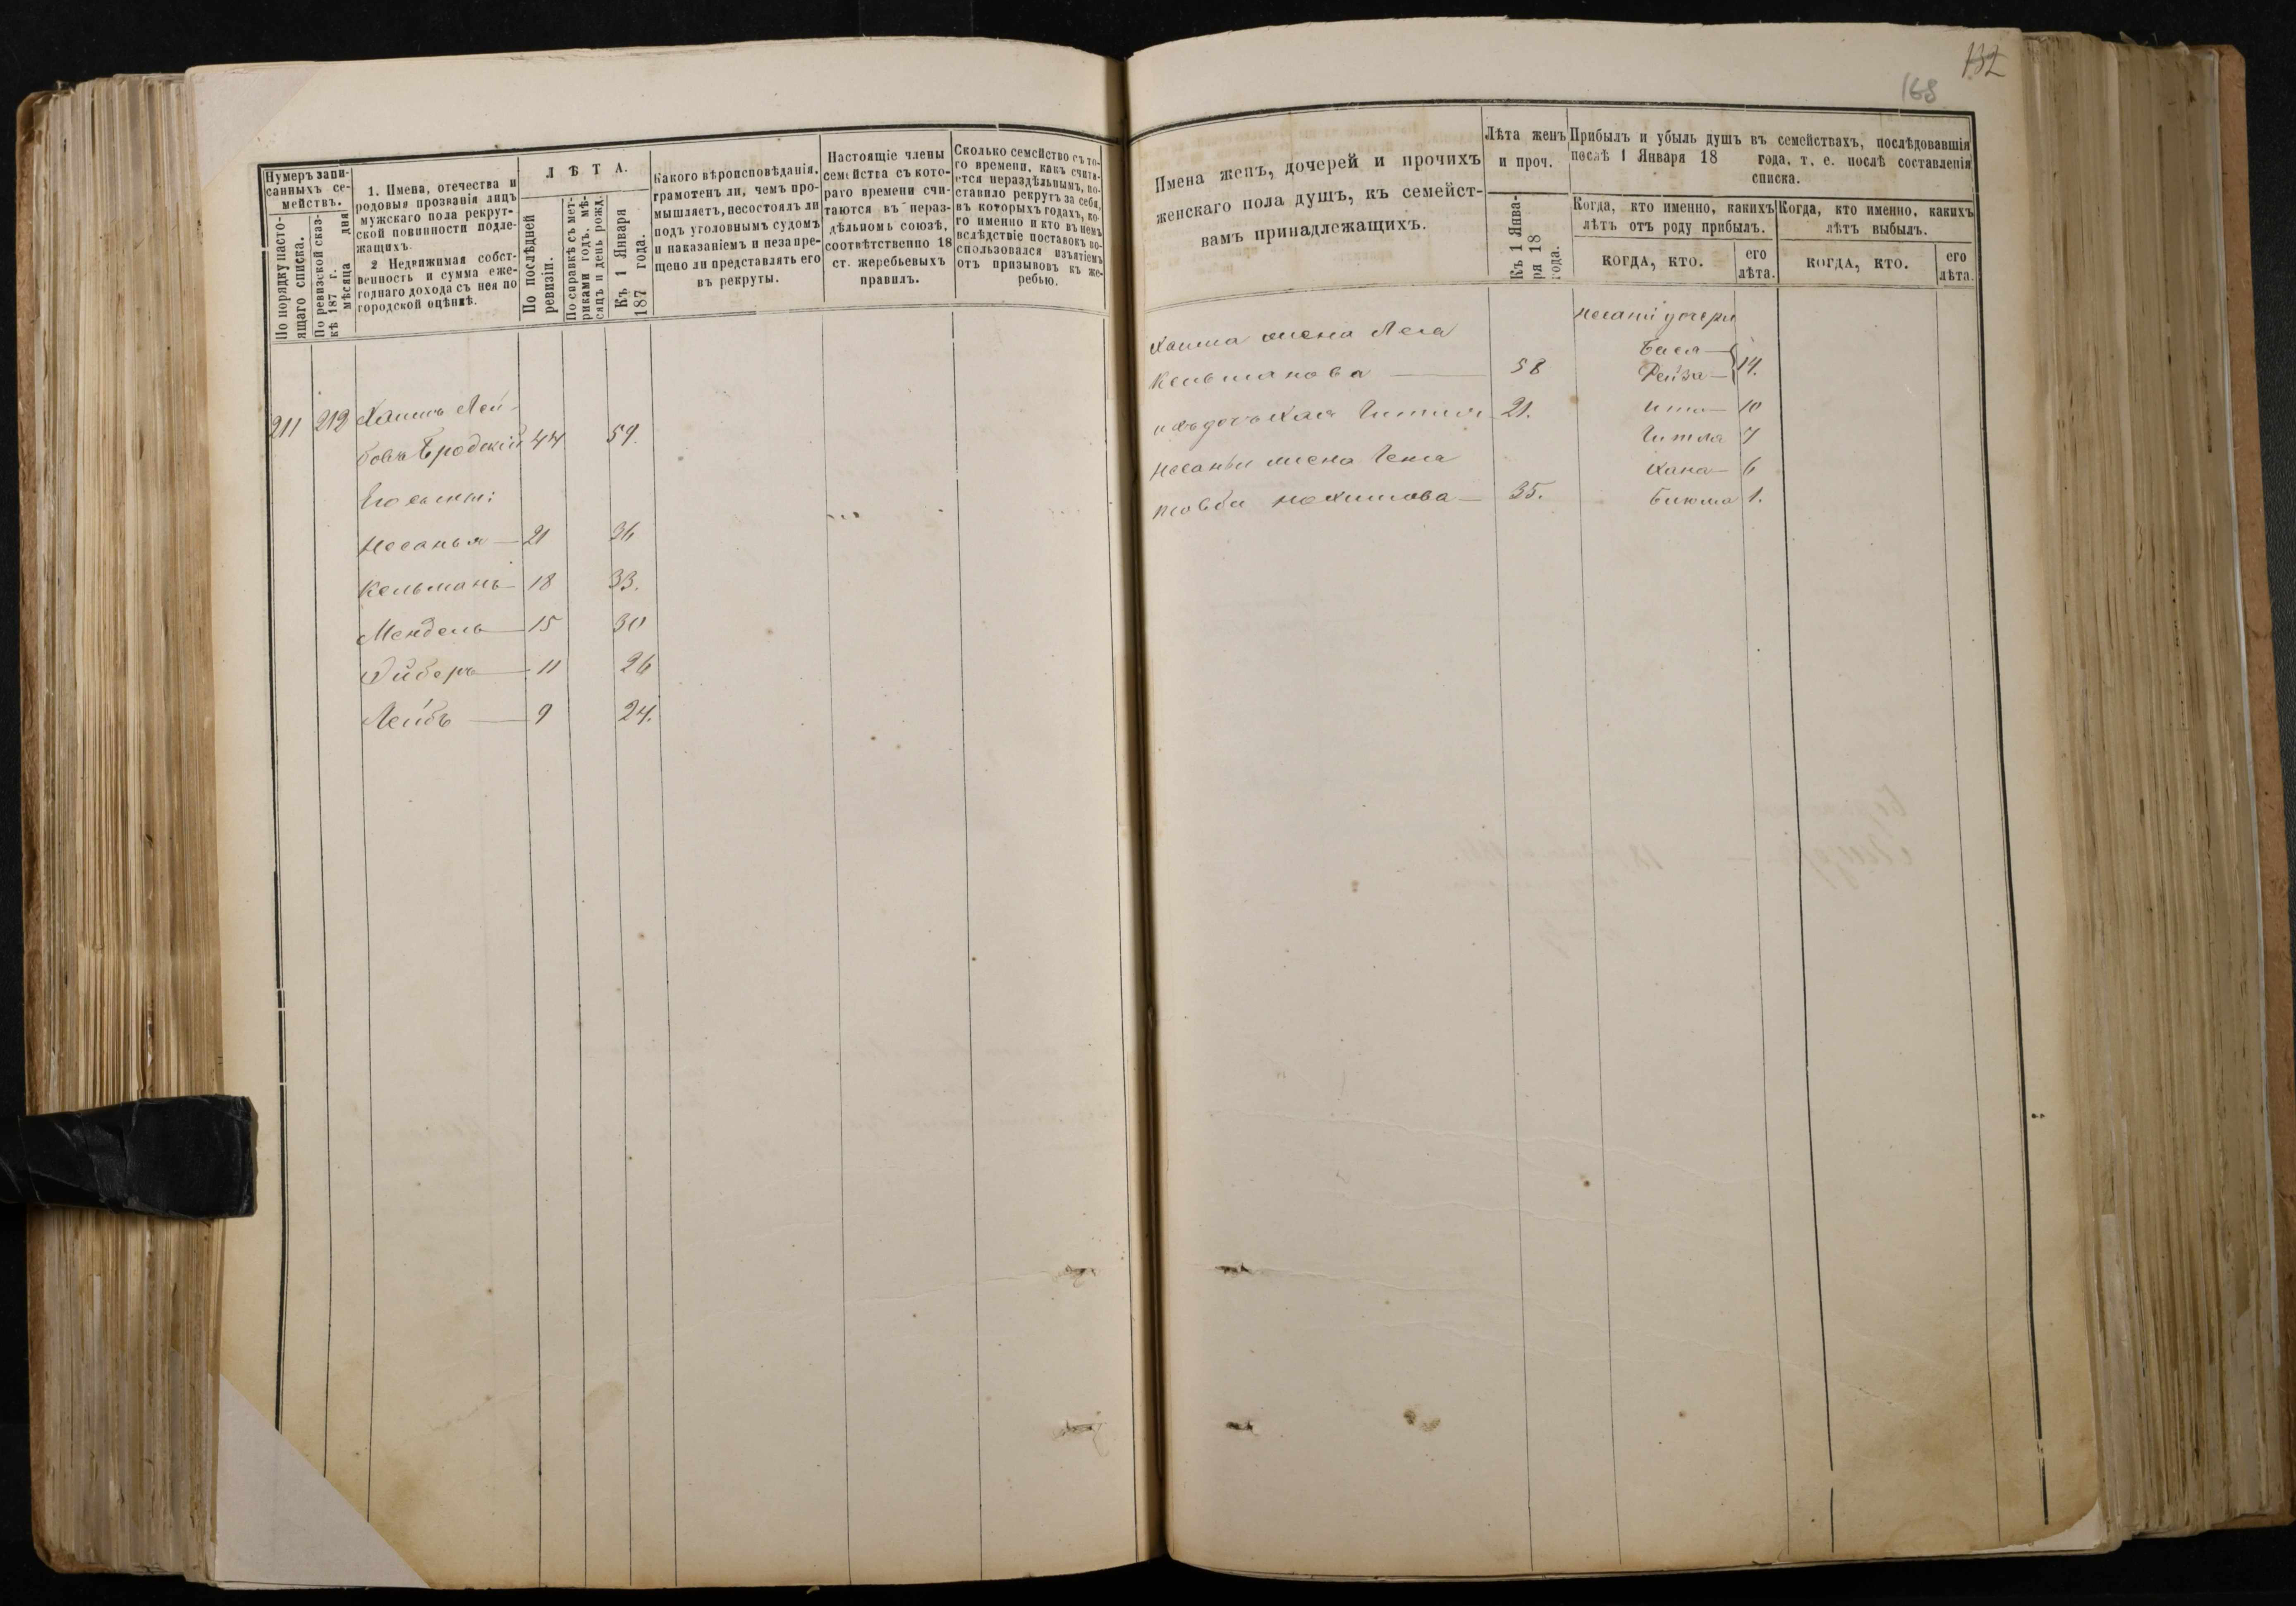 132
168
Нумеръ запи-
санныхъ се-
мействъ.
По порядку насто-
ящаго списка.
По ревизской сказ-
кѣ 187 г.
мѣсяца дня
1. Имена, отечества и
родовыя прозванія лицъ
мужскаго пола рекрут-
ской повинности подле-
жащихъ.
2 Недвижимая собст-
венность и сумма еже-
годнаго дохода съ нея по
городской оцѣнкѣ.
ЛѢТА.
По послѣдней
ревизіи.
По справкѣ съ мет-
риками годъ, мѣ-
сяцъ и день рожд.
Къ 1 Января
187 года.
Какого вѣроисповѣданія,
грамотенъ ли, чѣмъ про-
мышляетъ, несостоялъ ли
подъ уголовнымъ судомъ
и наказаніемъ и незапре-
щено ли представлять его
въ рекруты.
Настоящіе члены
семейства съ кото-
раго времени счи-
таются въ нераз-
дѣльномъ союзѣ,
соотвѣтственно 18
ст. жеребьевыхъ
правилъ.
Сколько семейство съ то-
го времени, какъ счита-
ется нераздѣльнымъ, по-
ставило рекрутъ за себя,
въ которыхъ годахъ, ко-
го именно и кто въ немъ
вслѣдствіе поставокъ во-
спользовался изъятіемъ
отъ призывовъ къ же-
ребью.
211 212 Хаимъ Лей-
бовъ Бродскій 44 59.
Его сыны:
Несанья 21 36
Кельманъ 18 33.
Мендель 15 30
Эйберъ 11 26
Лейбъ 9 24.
Имена женъ, дочерей и прочихъ
женскаго пола душъ, къ семейст-
вамъ принадлежащихъ.
Лѣта женъ
и проч.
Къ 1 Янва-
ря 18
года.
Прибыль и убыль душъ въ семействахъ, послѣдовавшія
послѣ 1 Января 18 года, т. е. послѣ составленія
списка.
Когда, кто именно, какихъ
лѣтъ отъ роду прибылъ.
Когда, кто именно, какихъ
лѣтъ выбылъ.
КОГДА, КТО.
его
лѣта.
КОГДА, КТО.
его
лѣта.
Хаима жена Леа
Кельманова 58
ихъ дочь Хая 21.
Несаньи жена Геня
35.
Несаніи дочери
Бася
Рейза 14.
Ита 10
Гитля 7
Хана 6
1.